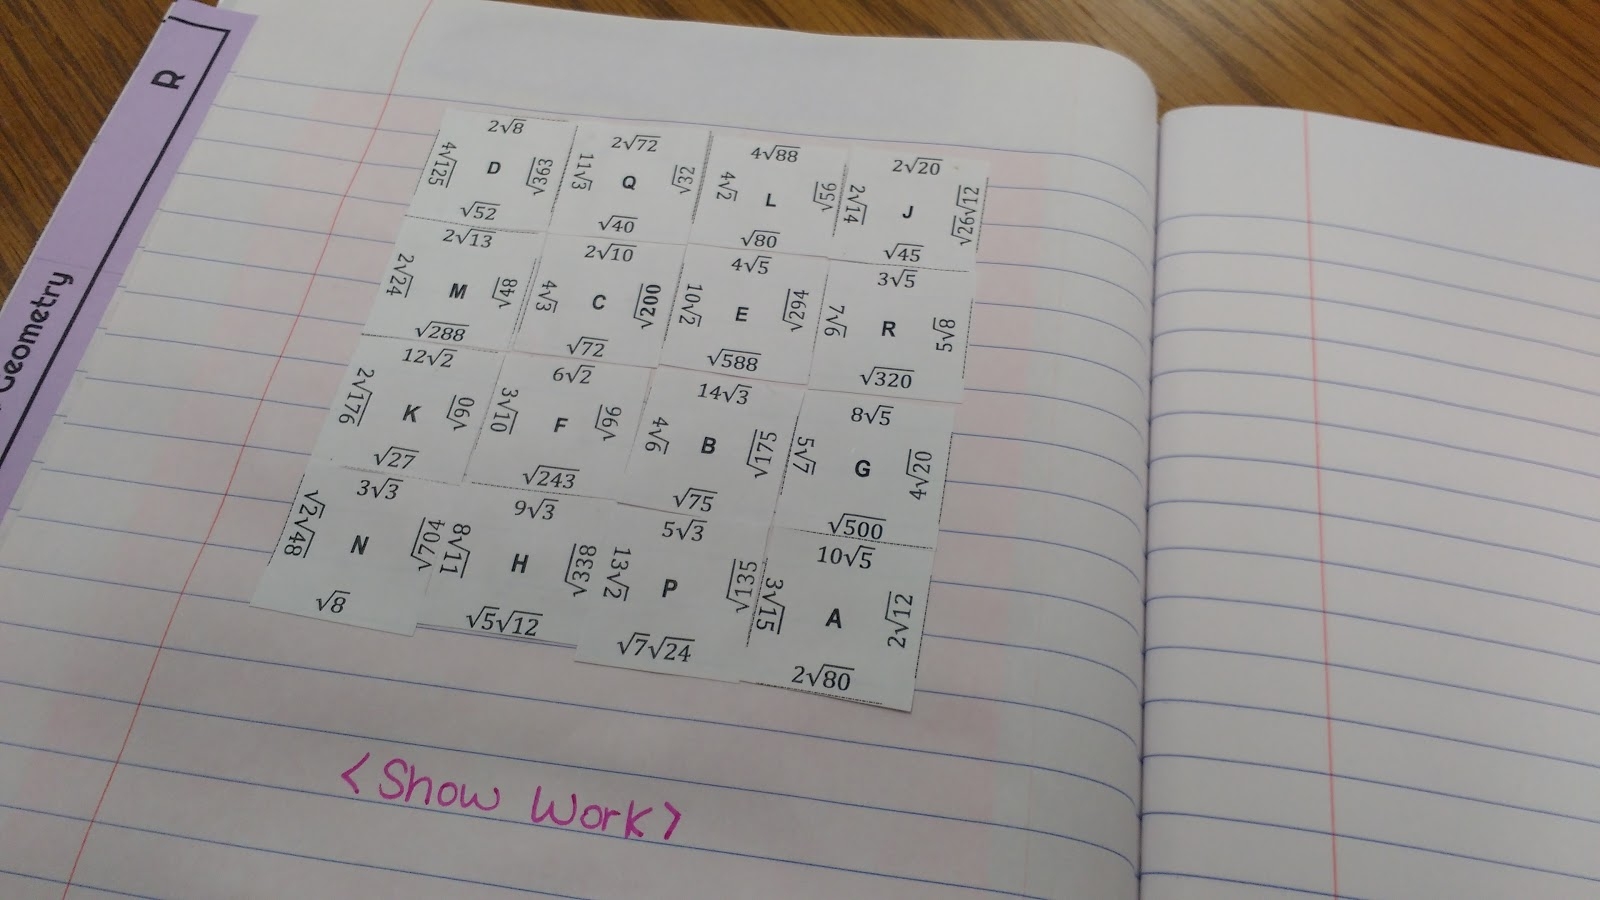 R
Geometry
2√8
4√125 D √363
√52
2√72
11√3 Q √32
√40
4√88
4√2 L √56
√80
2√20
2√14 J √26√12
√45
2√13
2√24 M √48
√288
2√10
4√3 C √200
√72
4√5
10√2 E √294
√588
3√5
7√6 R 5√8
√320
12√2
2√176 K √90
√27
6√2
3√10 F √96
√243
14√3
4√6 B √175
√75
8√5
5√7 G 4√20
√500
3√3
√2√48 N √704
√8
9√3
8√11 H √338
√5√12
5√3
13√2 P √135
√7√24
10√5
3√15 A 2√12
2√80
<Show Work>